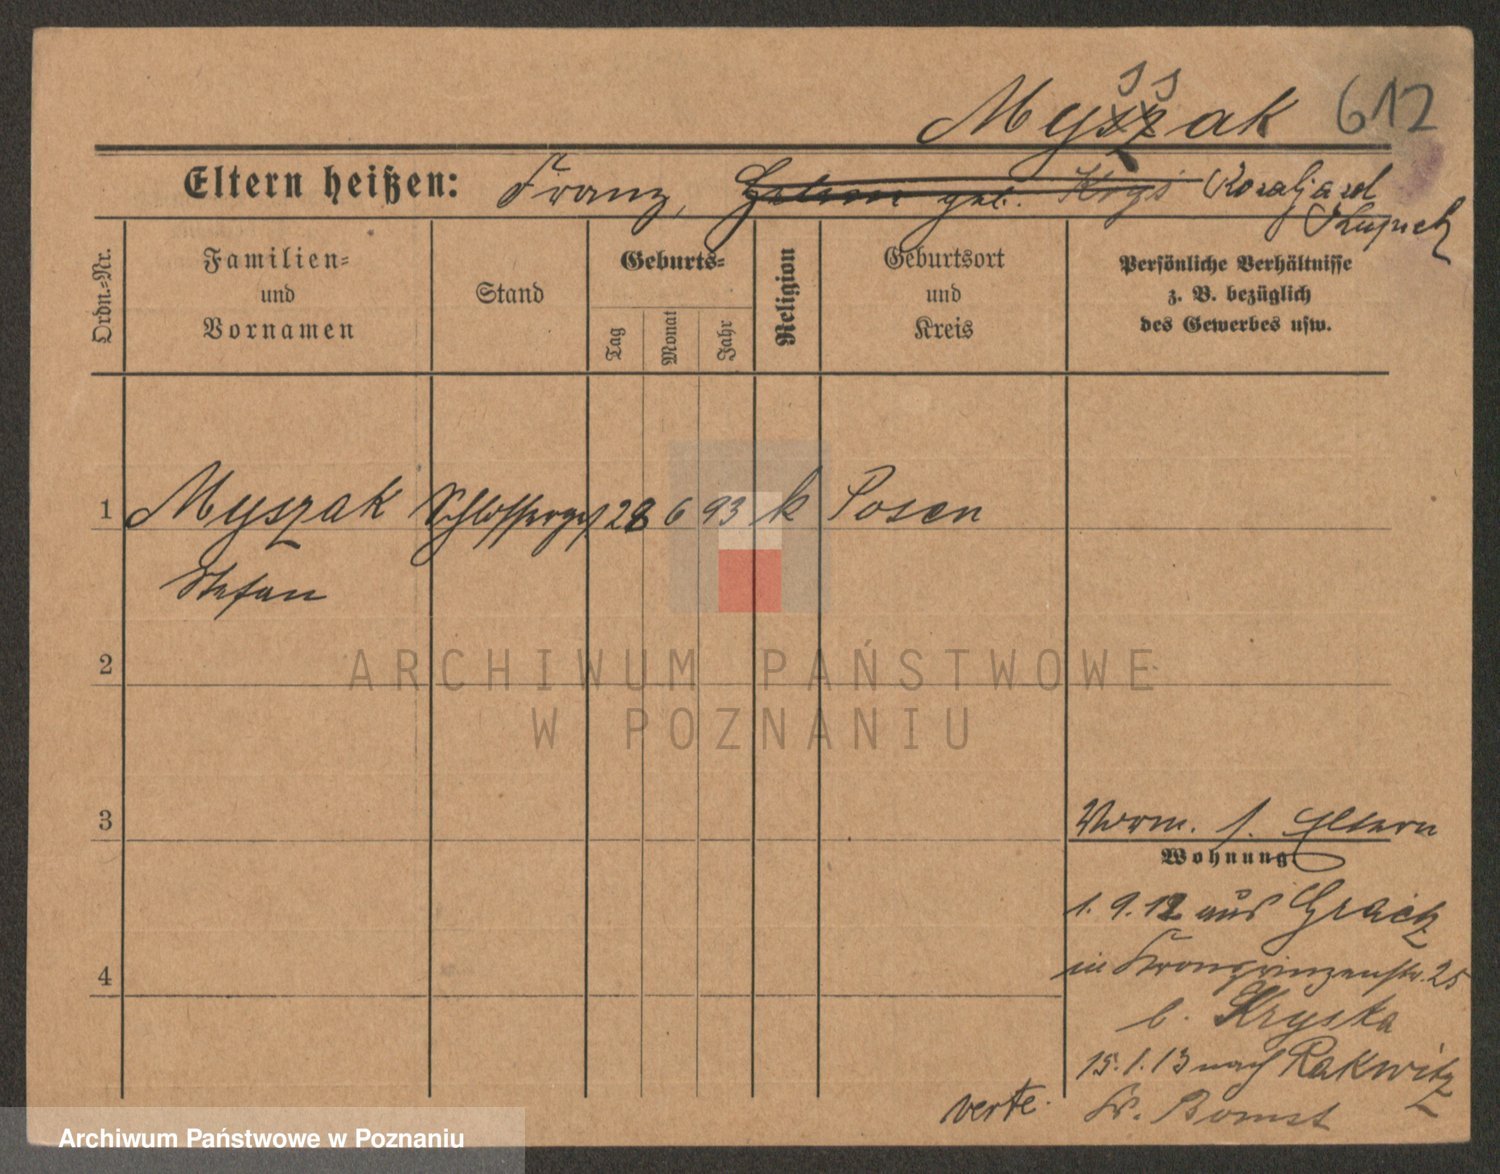 Myszak 612
Eltern heißen: Franz, Helene geb. Krys Rozalja zd
Skupieh
Ordn.-Nr.
Familien-
und
Vornamen
Stand
Geburts-
Tag
Monat
Jahr
Religion
Geburtsort
und
Kreis
Persönliche Verhältnisse
z. B. bezüglich
des Gewerbes usw.
1 Myszak Schlosserges 28 6 93 k Posen
Stefan
2
3
4
Verm. s. Eltern
Wohnung
1. 9. 12 aus Graetz
in Kronprinzenstr. 25
b. Kryska
15. 1. 13 nach Rakwitz
Kr. Bomst
verte.
ARCHIWUM PAŃSTWOWE
W POZNANIU
Archiwum Państwowe w Poznaniu